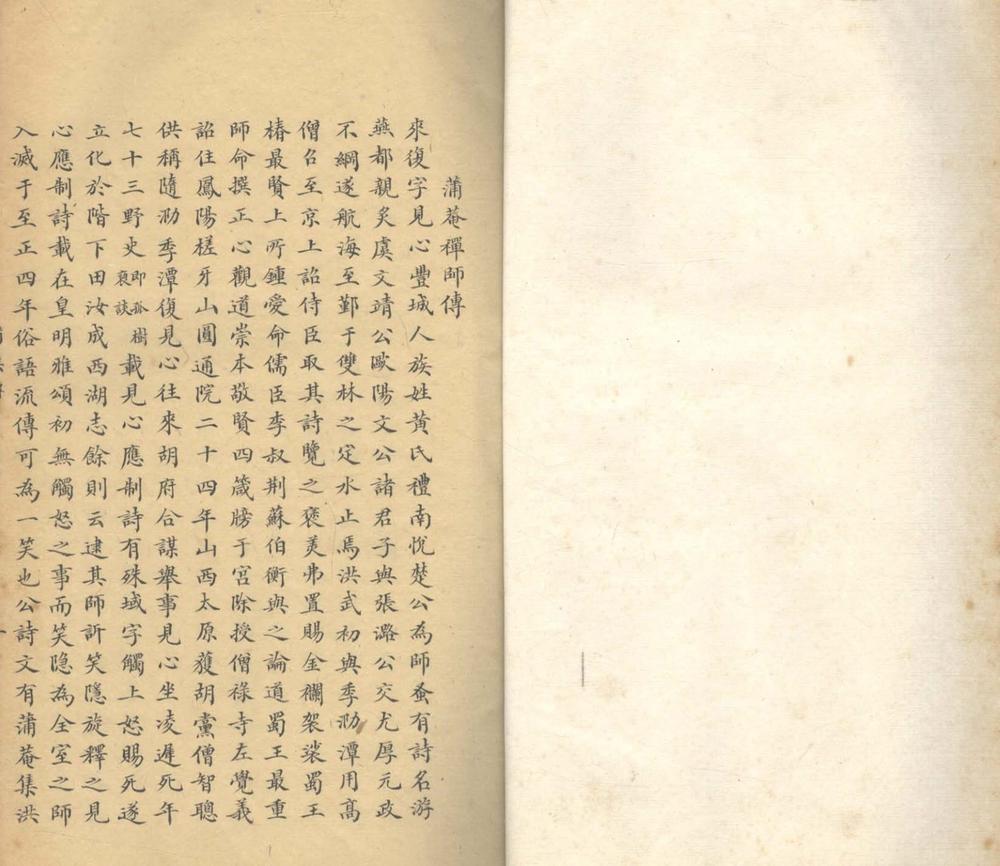 蒲菴禪師傳
來復字見心豐城人族姓黄氏禮南悅楚公為師蚤有詩名游
燕都親炙虞文靖公歐陽文公諸君子與張潞公交尤厚元政
不綱遂航海至鄞于雙林之定水止焉洪武初與季泐潭用高
僧召至京上詔侍臣取其詩覽之褒美弗置賜金襴袈裟蜀王
椿最賢上所鍾愛命儒臣李叔荆蘇伯衡與之論道蜀王最重
師命撰正心觀道崇本敬賢四箴牓于宮除授僧祿寺左覺義
詔住鳳陽槎牙山圓通院二十四年山西太原獲胡黨僧智聰
供稱隨泐季潭復見心往來胡府合謀舉事見心坐凌遲死年
七十三野史即孤樹裒談載見心應制詩有殊域字觸上怒賜死遂
立化於階下田汝成西湖志餘則云逮其師訢笑隱旋釋之見
心應制詩載在皇明雅頌初無觸怒之事而笑隐為全室之師
入滅于至正四年俗語流傳可為一笑也公詩文有蒲菴集洪